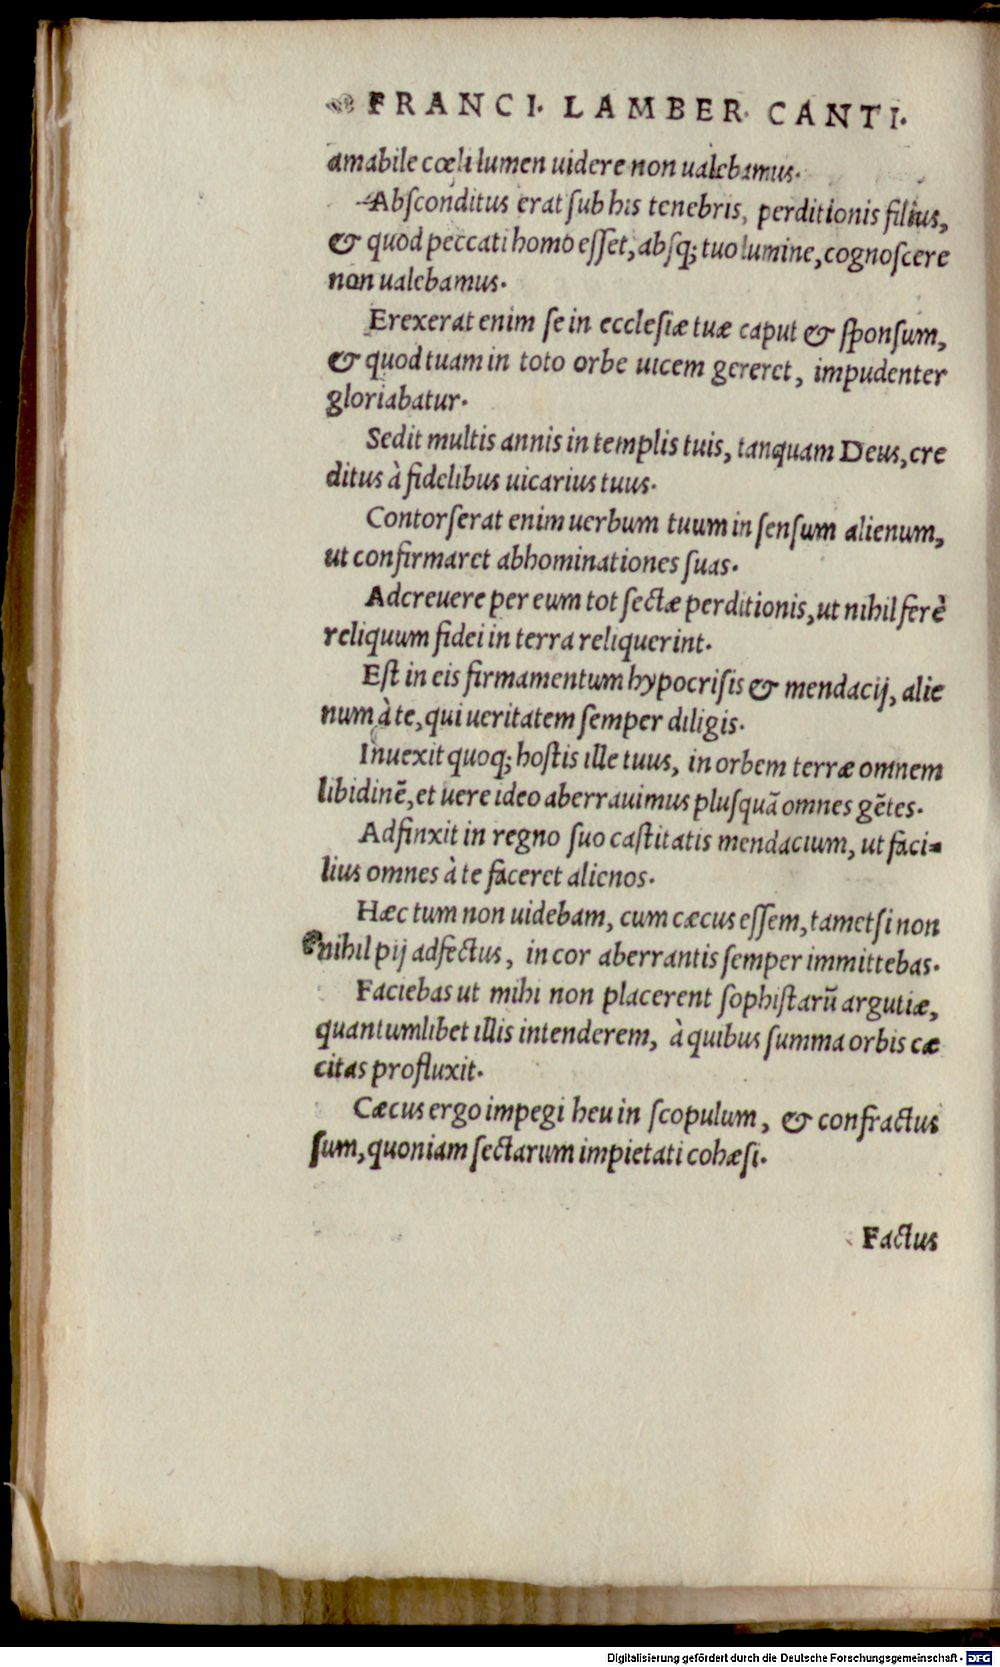 FRANCI. LAMBER. CANTI.
amabile cœli lumen uidere non ualebamus.
Absconditus erat sub his tenebris, perditionis filius,
& quod peccati homo esset, absq; tuo lumine, cognoscere
non ualebamus.
Erexerat enim se in ecclesiæ tuæ caput & sponsum,
& quod tuam in toto orbe uicem gereret, impudenter
gloriabatur.
Sedit multis annis in templis tuis, tanquam Deus, cre
ditus à fidelibus uicarius tuus.
Contorserat enim uerbum tuum in sensum alienum,
ut confirmaret abhominationes suas.
Adcreuere per eum tot sectæ perditionis, ut nihil ferè
reliquum fidei in terra reliquerint.
Est in eis firmamentum hypocrisis & mendacij, alie
num à te, qui ueritatem semper diligis.
Inuexit quoq; hostis ille tuus, in orbem terræ omnem
libidinē, et uere ideo aberrauimus plusquā omnes gētes.
Adfinxit in regno suo castitatis mendacium, ut faci-
lius omnes à te faceret alienos.
Hæc tum non uidebam, cum cæcus essem, tametsi non
nihil pij adfectus, in cor aberrantis semper immittebas.
Faciebas ut mihi non placerent sophistarū argutiæ,
quantumlibet illis intenderem, à quibus summa orbis cæ
citas profluxit.
Cæcus ergo impegi heu in scopulum, & confractus
sum, quoniam sectarum impietati cohæsi.
Factus
Digitalisierung gefördert durch die Deutsche Forschungsgemeinschaft - DFG